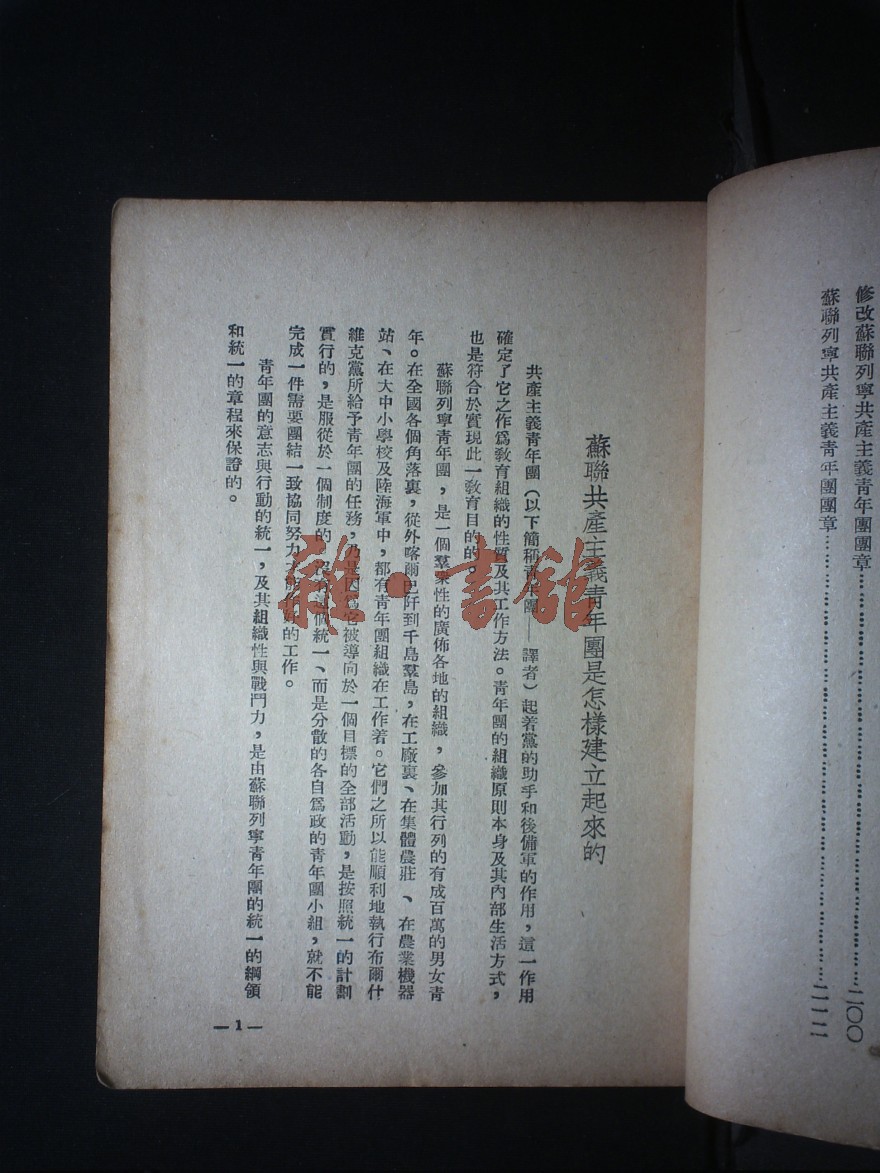 修改蘇聯列寧共產主義青年團團章……二〇〇
蘇聯列寧共產主義青年團團章……二一二
蘇聯共產主義青年團是怎樣建立起來的
共產主義青年團(以下簡稱青年團——譯者)起着黨的助手和後備軍的作用,這一作用
確定了它之作爲教育組織的性質及其工作方法。青年團的組織原則本身及其內部生活方式,
也是符合於實現此一教育目的的。
蘇聯列寧青年團,是一個羣衆性的廣佈各地的組織,參加其行列的有成百萬的男女青
年。在全國各個角落裏,從外喀爾巴阡到千島羣島,在工廠裏、在集體農莊、在農業機器
站、在大中小學校及陸海軍中,都有青年團組織在工作着。它們之所以能順利地執行布爾什
維克黨所給予青年團的任務,乃是因爲它被導向於一個目標的全部活動,是按照統一的計劃
實行的,是服從於一個制度的。沒有這個統一、而是分散的各自爲政的青年團小組,就不能
完成一件需要團結一致協同努力才能作好的工作。
青年團的意志與行動的統一,及其組織性與戰鬥力,是由蘇聯列寧青年團的統一的綱領
和統一的章程來保證的。
—1—
雜·書館